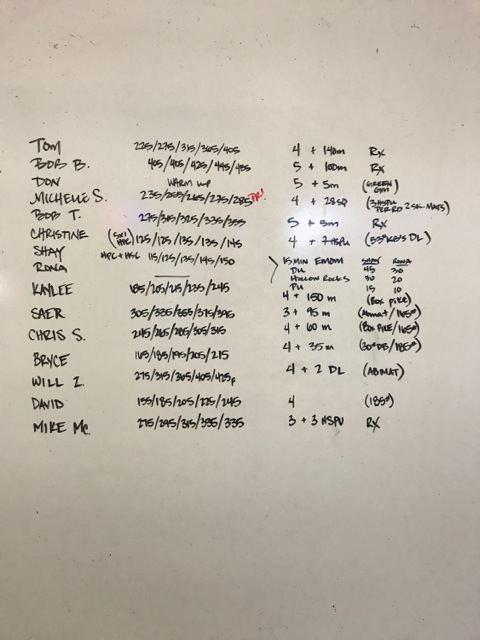 TOM 225/275/315/365/405 4 + 140m Rx
BOB B. 405/405/425/445/455 5 + 100m Rx
DON WARM UP 5 + 5m (GREEN GYM)
MICHELLE S. 235/255/265/275/285 PR! 4 + 28SQ (3HSPU 2SK MATS)
BOB T. 275/315/325/335/355 5 + 5m Rx
CHRISTINE 125/125/135/135/145 4 + 7HSPU (53#KB'S DL)
SHAY HPC+HSC 115/125/135/145/150 15 MIN EMOM SHAY RONA
RONA DU 45 30
HOLLOW ROCKS 30 20
PU 15 10
KAYLEE 185/205/215/235/245 4 + 150 m (BOX PIKE)
SAER 305/335/355/375/395 3 + 95 m (ABMAT/165#)
CHRIS S. 245/265/285/305/315 4 + 60 m (BOX PIKE/165#)
BRYCE 165/185/195/205/215 4 + 35m (30#DB/185#)
WILL Z. 275/315/365/405/425F 4 + 2 DL (ABMAT)
DAVID 155/185/205/225/245 4 (185#)
MIKE Mc. 275/295/315/335/335 3 + 3 HSPU Rx